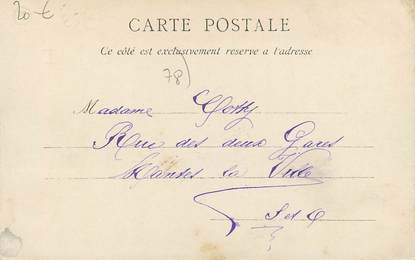 20 €
CARTE POSTALE
Ce côté est exclusivement reserve a l'adresse
78)
Madame
Rue des deux Gares
Mantes la Ville
S et O